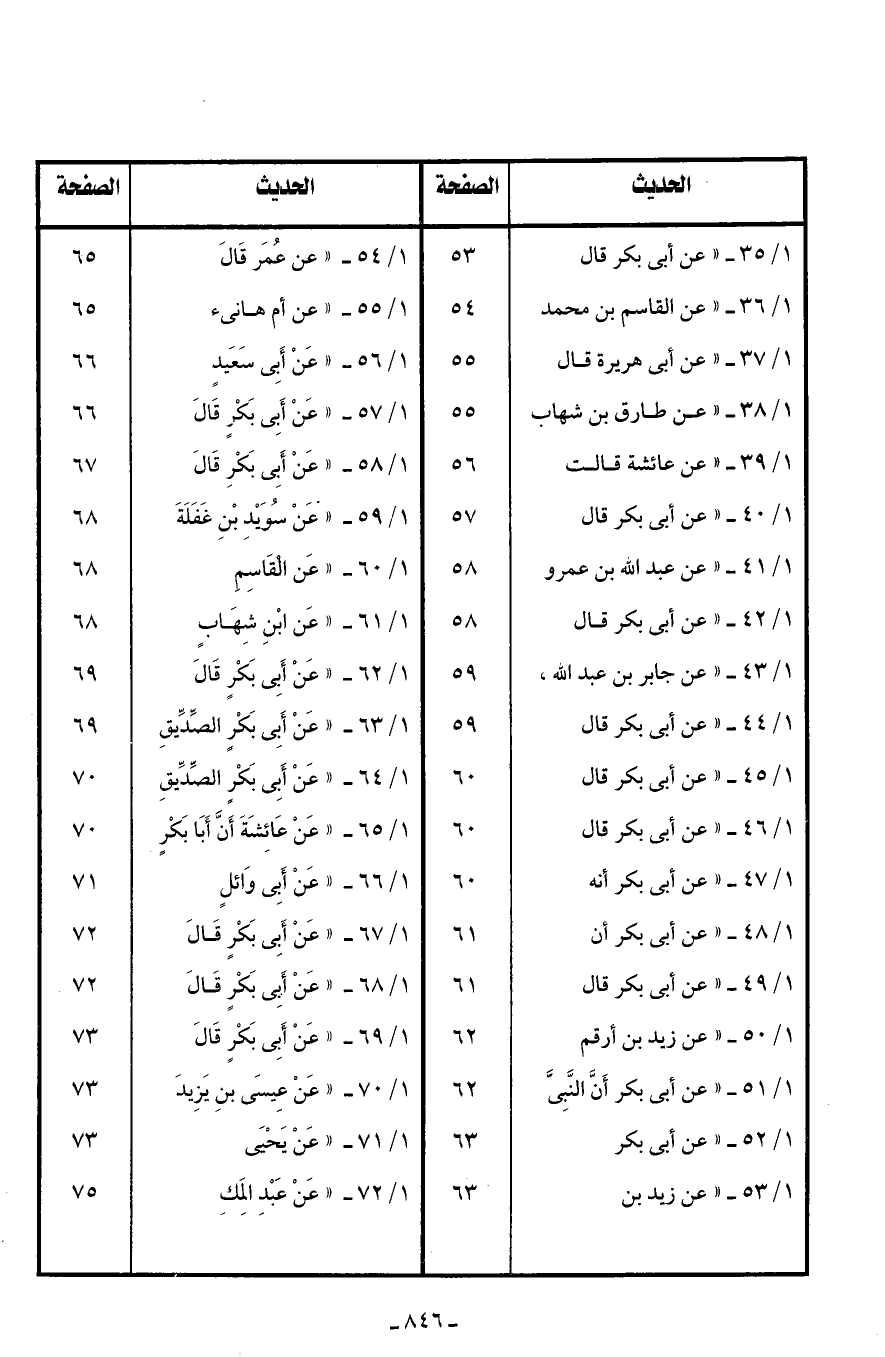 الحديث الصفحة الحديث الصفحة
١/ ٣٥ ـ « عن أبى بكر قال ٥٣ ١/ ٥٤ ـ « عن عُمَر قَالَ ٦٥
١/ ٣٦ ـ « عن القاسم بن محمد ٥٤ ١/ ٥٥ ـ « عن أم هـانىء ٦٥
١/ ٣٧ ـ « عن أبى هريرة قـال ٥٥ ١/ ٥٦ ـ « عَنْ أَبِى سَعَيدٍ ٦٦
١/ ٣٨ ـ « عـن طـارق بن شهاب ٥٥ ١/ ٥٧ ـ « عَنْ أَبِى بَكْرٍ قَالَ ٦٦
١/ ٣٩ ـ « عن عائشة قـالـت ٥٦ ١/ ٥٨ ـ « عَنْ أَبِى بَكْرٍ قَالَ ٦٧
١/ ٤٠ ـ « عن أبى بكر قال ٥٧ ١/ ٥٩ ـ « عَنْ سُوَيْدِ بْنِ غَفَلَةَ ٦٨
١/ ٤١ ـ « عن عبد الله بن عمرو ٥٨ ١/ ٦٠ ـ « عَن الْقَاسِمِ ٦٨
١/ ٤٢ ـ « عن أبى بكر قـال ٥٨ ١/ ٦١ ـ « عَن ابْنِ شِهَـابٍ ٦٨
١/ ٤٣ ـ « عن جابر بن عبد الله ، ٥٩ ١/ ٦٢ ـ « عَنْ أَبِى بَكْرٍ قَالَ ٦٩
١/ ٤٤ ـ « عن أبى بكر قال ٥٩ ١/ ٦٣ ـ « عَنْ أَبِى بَكْرٍ الصِّدِّيقِ ٦٩
١/ ٤٥ ـ « عن أبى بكر قال ٦٠ ١/ ٦٤ ـ « عَنْ أَبِى بَكْرٍ الصِّدِّيقِ ٧٠
١/ ٤٦ ـ « عن أبى بكر قال ٦٠ ١/ ٦٥ ـ « عَنْ عَائِشَةَ أَنَّ أَبَا بَكْرٍ ٧٠
١/ ٤٧ ـ « عن أبى بكر أنه ٦٠ ١/ ٦٦ ـ « عَنْ أَبِى وَائلٍ ٧١
١/ ٤٨ ـ « عن أبى بكر أن ٦١ ١/ ٦٧ ـ « عَنْ أَبِى بَكْرٍ قَـالَ ٧٢
١/ ٤٩ ـ « عن أبى بكر قال ٦١ ١/ ٦٨ ـ « عَنْ أَبِى بَكْرٍ قَـالَ ٧٢
١/ ٥٠ ـ « عن زيد بن أرقم ٦٢ ١/ ٦٩ ـ « عَنْ أَبِى بَكْرٍ قَالَ ٧٣
١/ ٥١ ـ « عن أبى بكر أَنَّ النَّبِىَّ ٦٢ ١/ ٧٠ ـ « عَنْ عِيسَى بنِ يَزِيدَ ٧٣
١/ ٥٢ ـ « عن أبى بكر ٦٣ ١/ ٧١ ـ « عَنْ يَحْيَى ٧٣
١/ ٥٣ ـ « عن زيد بن ٦٣ ١/ ٧٢ ـ « عَنْ عَبْدِ الْمَلِكِ ٧٥
ـ ٨٤٦ ـ